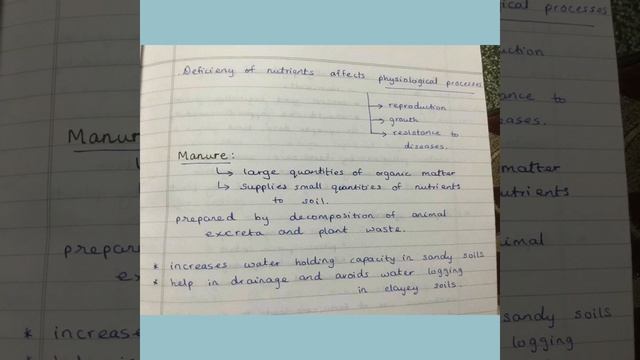 Deficieny of nutrients affects physiological processes
→ reproduction
→ growth
→ resistance to
diseases.
Manure:
↳ large quantities of organic matter
↳ supplies small quantities of nutrients
to soil.
prepared by decomposition of animal
excreta and plant waste.
* increases water holding capacity in sandy soils
* help in drainage and avoids water logging
in clayey soils.